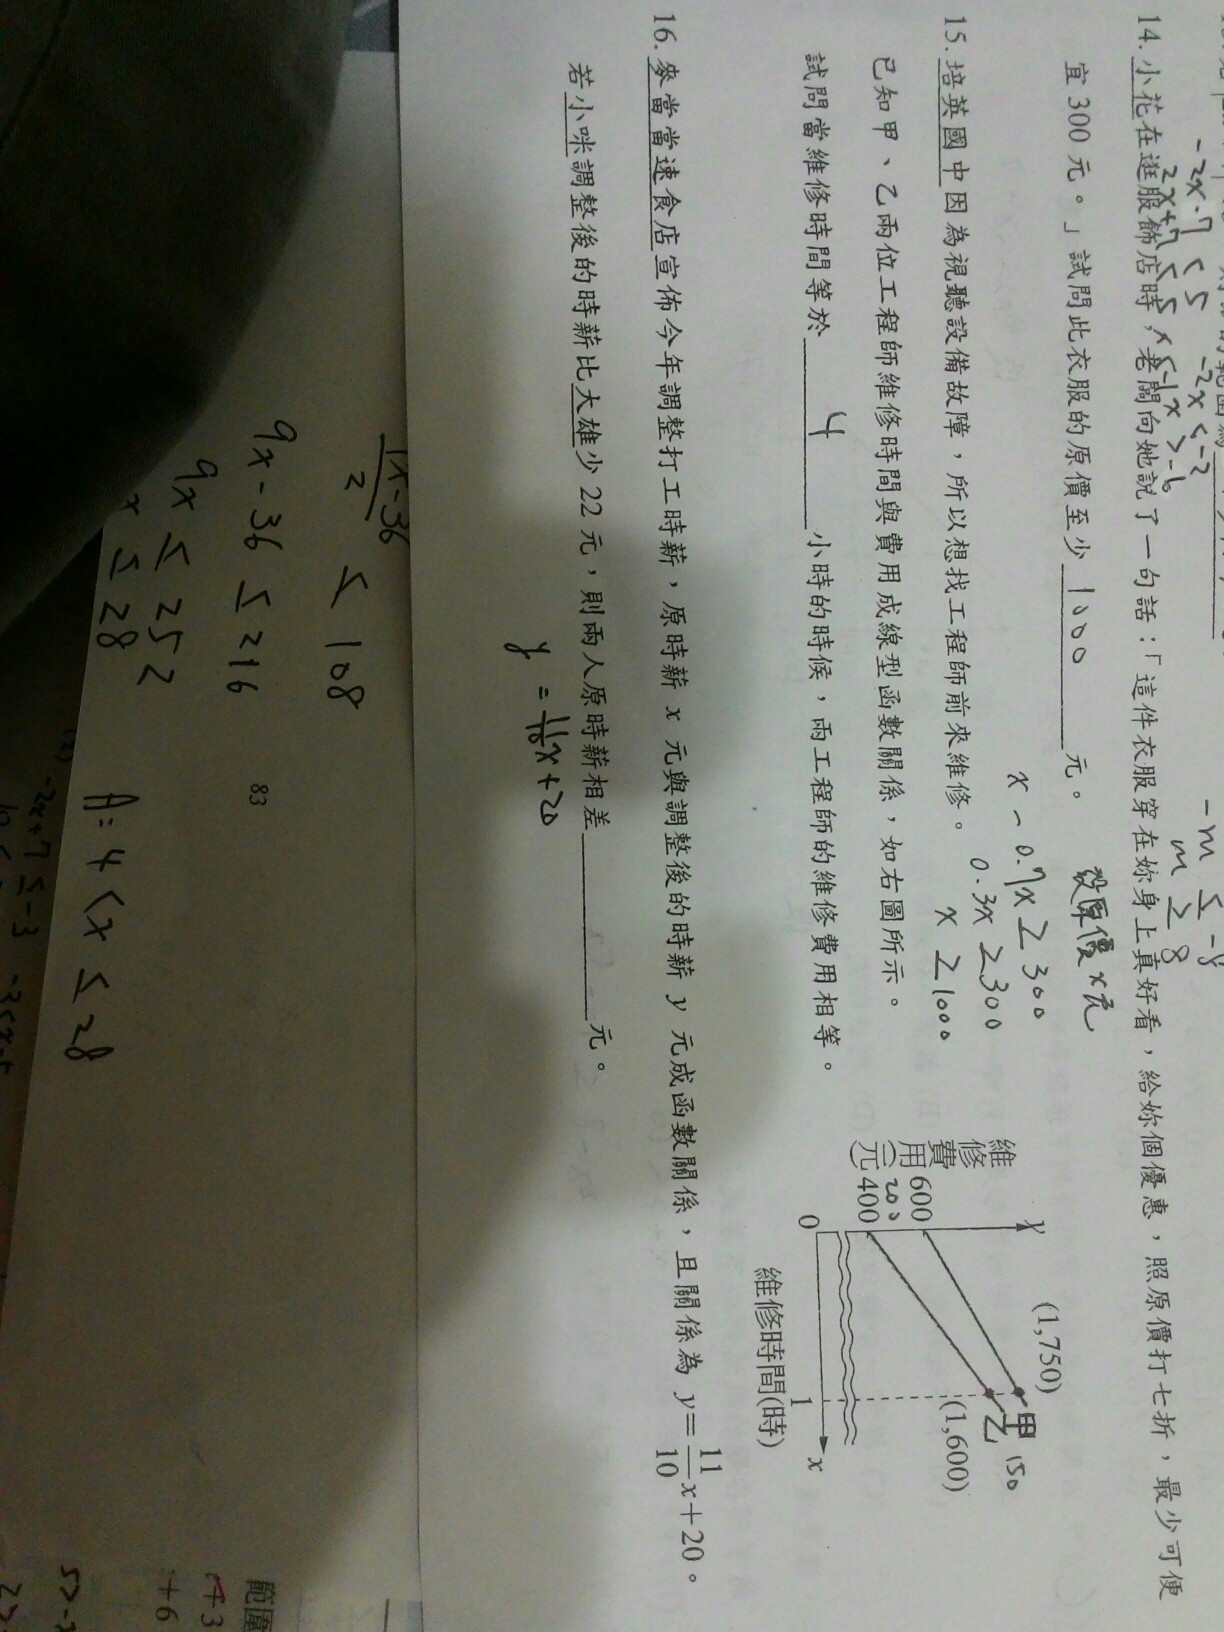 -2x+7≤5
2x+7≤5
-2x<-2
-m≤-8
m≥8
14. 小花在逛服飾店時,老闆向她說了一句話:「這件衣服穿在妳身上真好看,給妳個優惠,照原價打七折,最少可便
宜 300 元。」試問此衣服的原價至少 1000 元。
設原價x元
x-0.7x≥300
0.3x≥300
x≥1000
15. 培英國中因為視聽設備故障,所以想找工程師前來維修。
已知甲、乙兩位工程師維修時間與費用成線型函數關係,如右圖所示。
試問當維修時間等於 4 小時的時候,兩工程師的維修費用相等。
維修費用(元)
y
600
200
400
0
(1,750)
甲 150
乙
(1,600)
1
x
維修時間(時)
16. 麥當當速食店宣佈今年調整打工時薪,原時薪 x 元與調整後的時薪 y 元成函數關係,且關係為 y=11/10x+20。
若小咪調整後的時薪比大雄少 22 元,則兩人原時薪相差 元。
y=11/10x+20
≤ 108
9x-36≤216
9x≤252
x≤28
A:4<x≤28
83
(2)
-2x+7≤-3
範圍
+3
+6